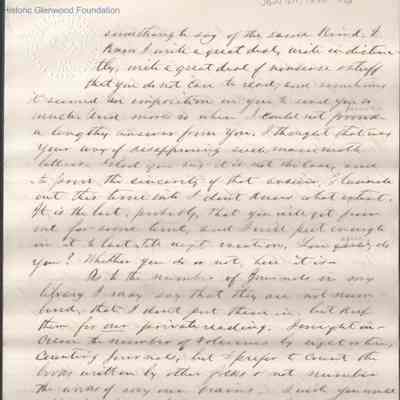 Historic Glenwood Foundation
something to say of the same kind. I
know I write a great deal, write indistinc-
tly, write a great deal of nonsense & stuff
that you do not care to read, and sometimes
it seemed an imposition on you to send you so
much. And more so when I could not provoke
a lengthy answer from you. I thought that was
your way of disapproving such mammoth
letters. Glad you say it is not the case, and
to prove the sincerity of that answer, I launch
out this time into I don't know what extent.
It is the last, probably, that you will get from
me for some time, and I will put enough
in it to last till next vacation. Low
you? Whether you do or not, here it is.
As to the number of Journals in my
library I may say that they are not num-
bered, that I don't put them in, but keep
them for our private reading. I might in-
crease the number of Volumes by eight or ten,
counting Journals, but I prefer to count the
books written by other folks & not number
the works of my own brains. I wish you would